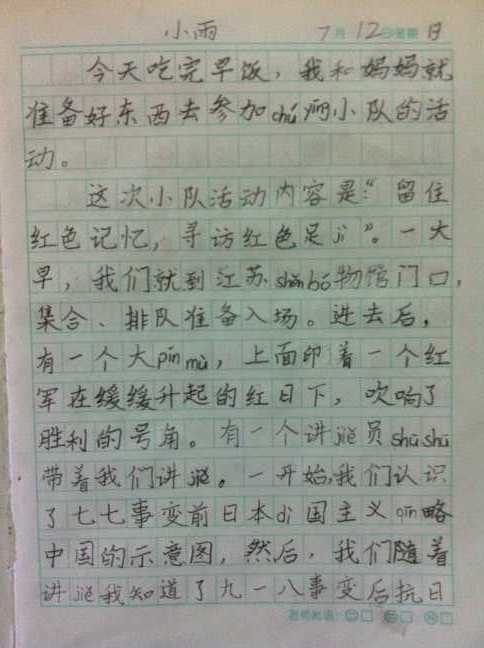 小雨 7月12日星期日
今天吃完早饭，我和妈妈就
准备好东西去参加chú yīng小队的活
动。
这次小队活动内容是：“留住
红色记忆，寻访红色足jì”。一大
早，我们就到江苏shěn bó物馆门口，
集合、排队准备入场。进去后，
有一个大píng mù，上面印着一个红
军在缓缓升起的红日下，吹响了
胜利的号角。有一个讲jiě员shū shu
带着我们讲jiě。一开始，我们认识
了七七事变前日本dì国主义qīn略
中国的示意图，然后，我们随着
讲jiě我知道了九一八事变后抗日